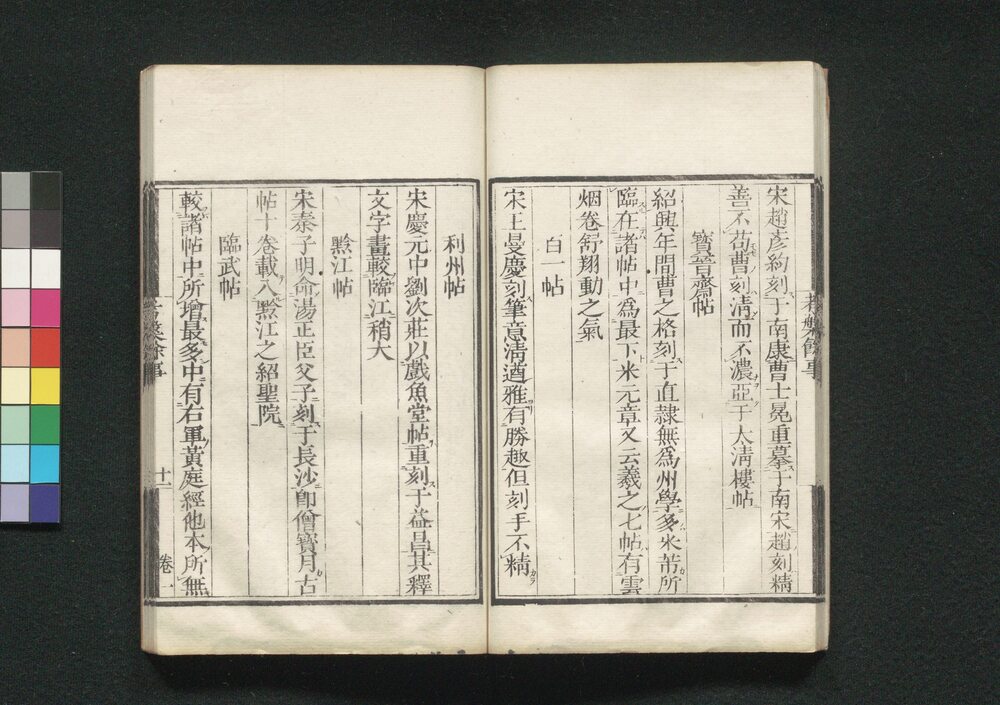 宋趙彦約刻于南康曹士冕重摹于南宋趙刻精
善不苟曹刻清而不濃亞于太清樓帖
寶晉齋帖
紹興年間曹之格刻于直隷無爲州學多米芾所
臨在諸帖中爲最下米元章又云羲之七帖有雲
烟卷舒翔動之氣
白一帖
宋王曼慶刻筆意清遒雅有勝趣但刻手不精
利州帖
宋慶元中劉次莊以戲魚堂帖重刻于益昌其釋
文字畫較臨江稍大
黟江帖
宋秦子明命湯正臣父子刻于長沙卽僧寶月古
帖十卷載入黟江之紹聖院
臨武帖
較諸帖中所增最多中有右軍黃庭經他本所無
考槃餘事
十一
卷一